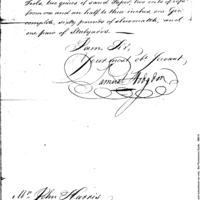 Tools, two quires of sand Paper, two sets of
from one and an half to three inches, one Gin
complete, sixty pounds of slowmatch, and
one pair of Stulyards.
I am Sir,
Your most obt. Servant,
Samuel Hodgdon
Mr. John Harris